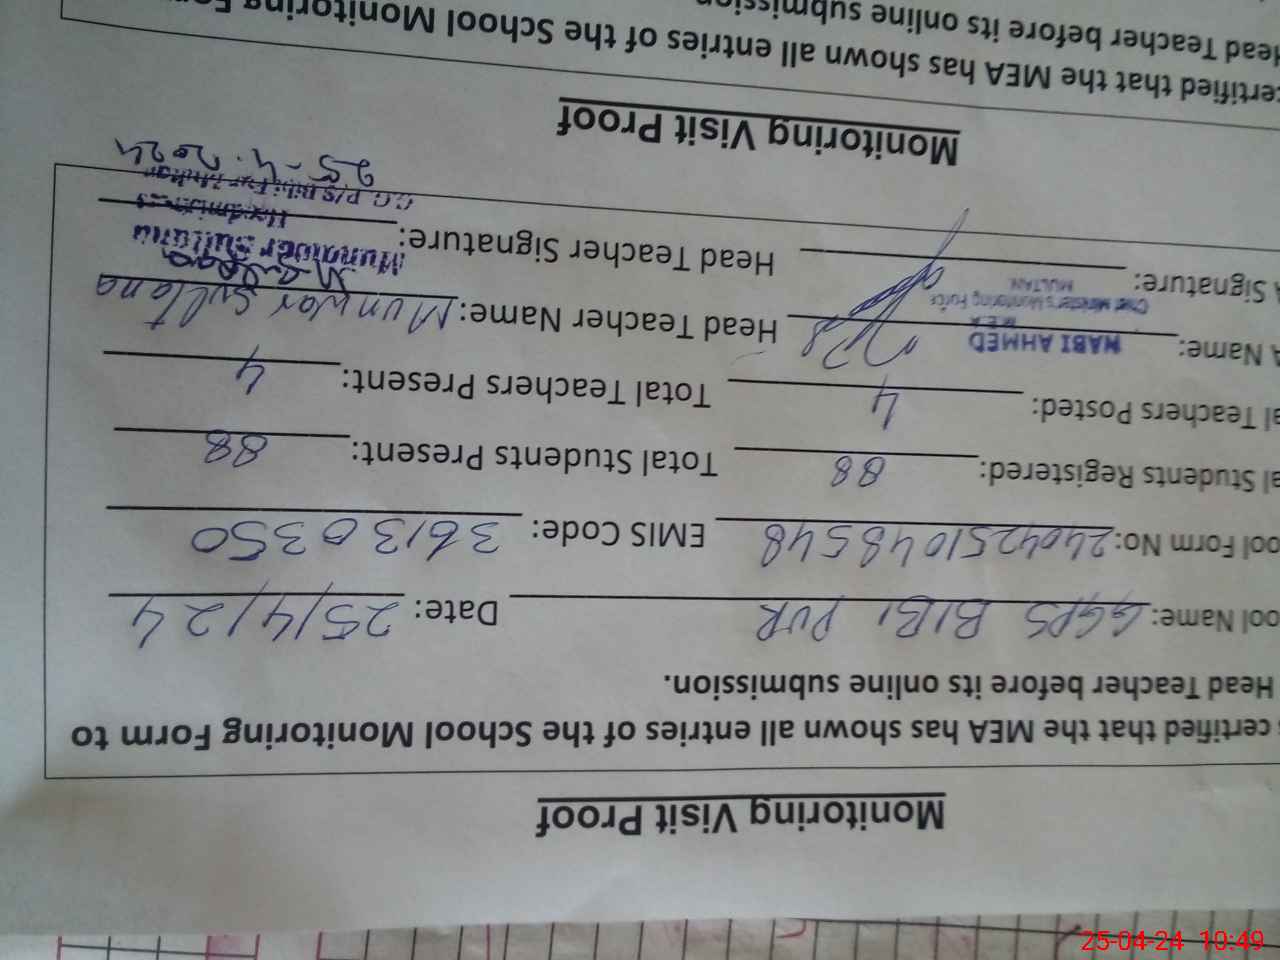 Monitoring Visit Proof
certified that the MEA has shown all entries of the School Monitoring Form to
Head Teacher before its online submission.
ool Name: GGPS BIBI PUR Date: 25/4/24
ool Form No: 2404251048548 EMIS Code: 36130350
al Students Registered: 88 Total Students Present: 88
al Teachers Posted: 4 Total Teachers Present: 4
A Name: NABI AHMED Head Teacher Name: Munwar Sultana
M.E.A
Chief Minister's Monitoring Force
MULTAN
A Signature: Head Teacher Signature:
Munawar Sultana
Headmistress
25-4-2024
Monitoring Visit Proof
certified that the MEA has shown all entries of the School Monitoring Fo
Head Teacher before its online submission
25-04-24 10:49